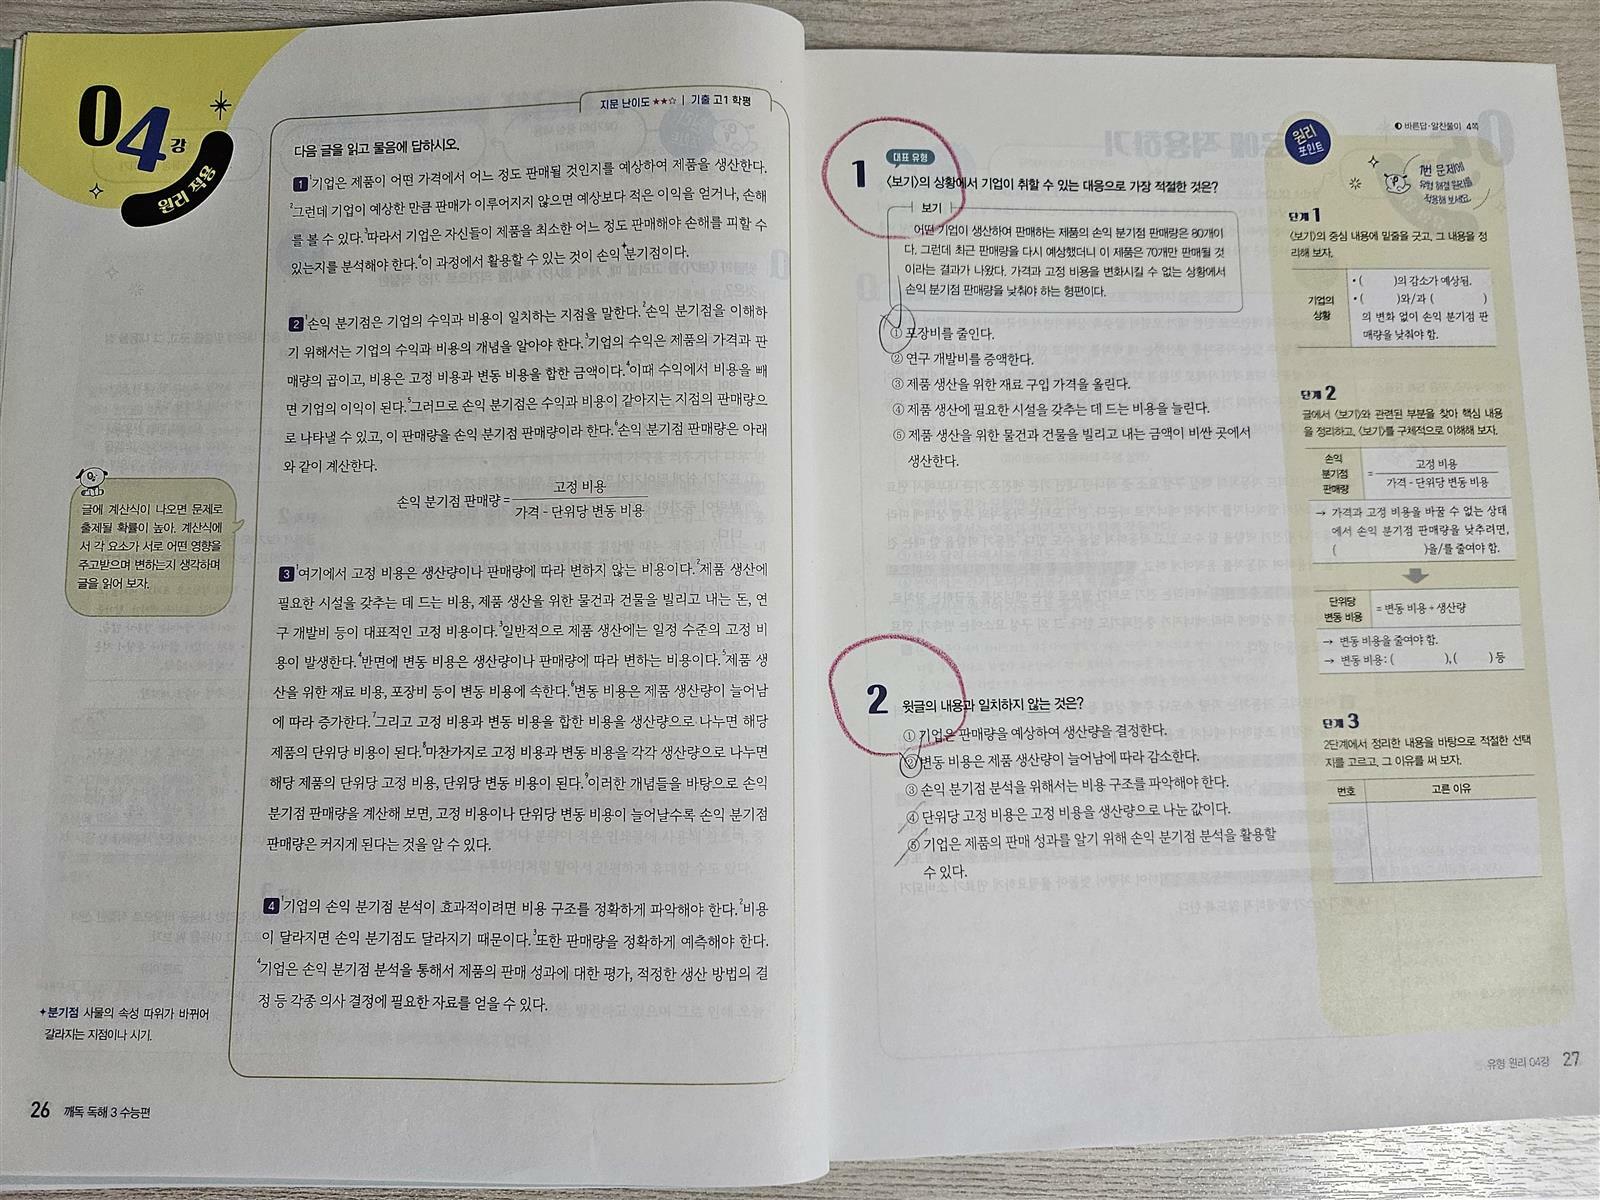 04강
원리 적용
지문 난이도 ★★☆ | 기출 고1 학평
다음 글을 읽고 물음에 답하시오.
1 ¹기업은 제품이 어떤 가격에서 어느 정도 판매될 것인지를 예상하여 제품을 생산한다.
²그런데 기업이 예상한 만큼 판매가 이루어지지 않으면 예상보다 적은 이익을 얻거나, 손해
를 볼 수 있다.³따라서 기업은 자신들이 제품을 최소한 어느 정도 판매해야 손해를 피할 수
있는지를 분석해야 한다.⁴이 과정에서 활용할 수 있는 것이 손익 분기점이다.
2 ¹손익 분기점은 기업의 수익과 비용이 일치하는 지점을 말한다.²손익 분기점을 이해하
기 위해서는 기업의 수익과 비용의 개념을 알아야 한다.³기업의 수익은 제품의 가격과 판
매량의 곱이고, 비용은 고정 비용과 변동 비용을 합한 금액이다.⁴이때 수익에서 비용을 빼
면 기업의 이익이 된다.⁵그러므로 손익 분기점은 수익과 비용이 같아지는 지점의 판매량으
로 나타낼 수 있고, 이 판매량을 손익 분기점 판매량이라 한다.⁶손익 분기점 판매량은 아래
와 같이 계산한다.
고정 비용
손익 분기점 판매량 =
가격 - 단위당 변동 비용
글에 계산식이 나오면 문제로
출제될 확률이 높아. 계산식에
서 각 요소가 서로 어떤 영향을
주고받으며 변하는지 생각하며
글을 읽어 보자.
3 ¹여기에서 고정 비용은 생산량이나 판매량에 따라 변하지 않는 비용이다.²제품 생산에
필요한 시설을 갖추는 데 드는 비용, 제품 생산을 위한 물건과 건물을 빌리고 내는 돈, 연
구 개발비 등이 대표적인 고정 비용이다.³일반적으로 제품 생산에는 일정 수준의 고정 비
용이 발생한다.⁴반면에 변동 비용은 생산량이나 판매량에 따라 변하는 비용이다.⁵제품 생
산을 위한 재료 비용, 포장비 등이 변동 비용에 속한다.⁶변동 비용은 제품 생산량이 늘어남
에 따라 증가한다.⁷그리고 고정 비용과 변동 비용을 합한 비용을 생산량으로 나누면 해당
제품의 단위당 비용이 된다.⁸마찬가지로 고정 비용과 변동 비용을 각각 생산량으로 나누면
해당 제품의 단위당 고정 비용, 단위당 변동 비용이 된다.⁹이러한 개념들을 바탕으로 손익
분기점 판매량을 계산해 보면, 고정 비용이나 단위당 변동 비용이 늘어날수록 손익 분기점
판매량은 커지게 된다는 것을 알 수 있다.
4 ¹기업의 손익 분기점 분석이 효과적이려면 비용 구조를 정확하게 파악해야 한다.²비용
이 달라지면 손익 분기점도 달라지기 때문이다.³또한 판매량을 정확하게 예측해야 한다.
⁴기업은 손익 분기점 분석을 통해서 제품의 판매 성과에 대한 평가, 적정한 생산 방법의 결
정 등 각종 의사 결정에 필요한 자료를 얻을 수 있다.
✦분기점 사물의 속성 따위가 바뀌어
갈라지는 지점이나 시기.
26 깨독 독해 3 수능편
대표 유형
1 〈보기〉의 상황에서 기업이 취할 수 있는 대응으로 가장 적절한 것은?
보기
어떤 기업이 생산하여 판매하는 제품의 손익 분기점 판매량은 80개이
다. 그런데 최근 판매량을 다시 예상했더니 이 제품은 70개만 판매될 것
이라는 결과가 나왔다. 가격과 고정 비용을 변화시킬 수 없는 상황에서
손익 분기점 판매량을 낮춰야 하는 형편이다.
① 포장비를 줄인다.
② 연구 개발비를 증액한다.
③ 제품 생산을 위한 재료 구입 가격을 올린다.
④ 제품 생산에 필요한 시설을 갖추는 데 드는 비용을 늘린다.
⑤ 제품 생산을 위한 물건과 건물을 빌리고 내는 금액이 비싼 곳에서
생산한다.
2 윗글의 내용과 일치하지 않는 것은?
① 기업은 판매량을 예상하여 생산량을 결정한다.
② 변동 비용은 제품 생산량이 늘어남에 따라 감소한다.
③ 손익 분기점 분석을 위해서는 비용 구조를 파악해야 한다.
④ 단위당 고정 비용은 고정 비용을 생산량으로 나눈 값이다.
⑤ 기업은 제품의 판매 성과를 알기 위해 손익 분기점 분석을 활용할
수 있다.
바른답·알찬풀이 4쪽
원리
포인트
1번 문제에
유형 해결 원리를
적용해 보세요.
단계 1
〈보기〉의 중심 내용에 밑줄을 긋고, 그 내용을 정
리해 보자.
기업의
상황
• ( )의 감소가 예상됨.
• ( )와/과 ( )
의 변화 없이 손익 분기점 판
매량을 낮춰야 함.
단계 2
글에서 〈보기〉와 관련된 부분을 찾아 핵심 내용
을 정리하고, 〈보기〉를 구체적으로 이해해 보자.
손익
분기점
판매량
고정 비용
=
가격 - 단위당 변동 비용
→ 가격과 고정 비용을 바꿀 수 없는 상태
에서 손익 분기점 판매량을 낮추려면,
( )을/를 줄여야 함.
단위당
변동 비용
= 변동 비용 ÷ 생산량
→ 변동 비용을 줄여야 함.
→ 변동 비용: ( ), ( ) 등
단계 3
2단계에서 정리한 내용을 바탕으로 적절한 선택
지를 고르고, 그 이유를 써 보자.
번호 고른 이유
유형 원리 04강 27